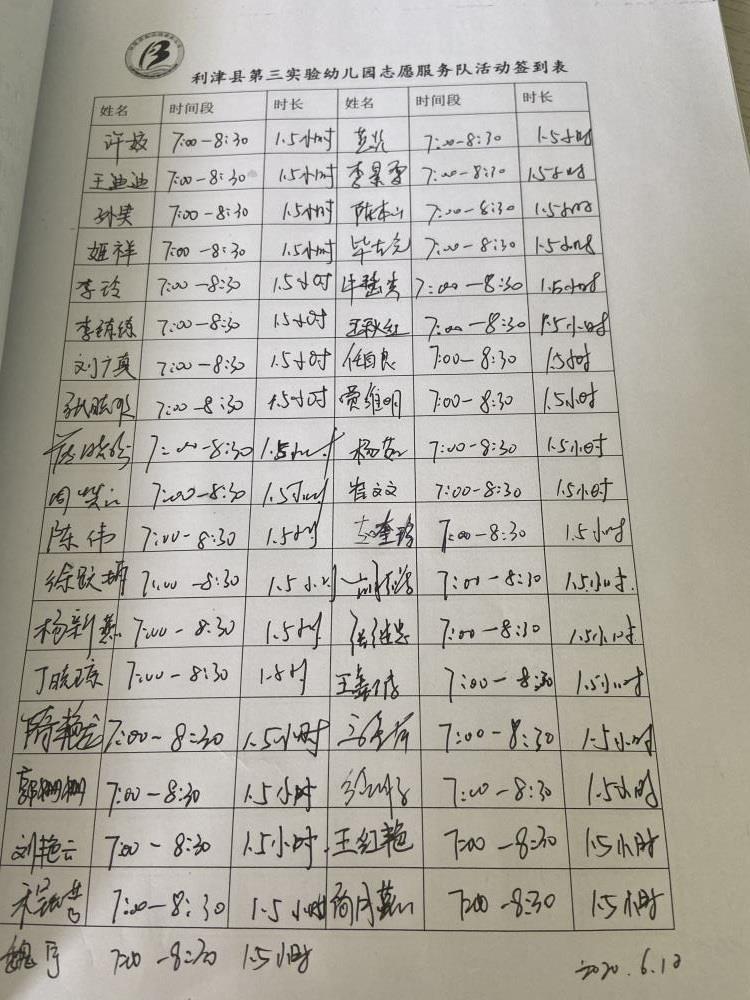 利津县第三实验幼儿园志愿服务队活动签到表
姓名 时间段 时长 姓名 时间段 时长
许姣 7:00-8:30 1.5小时 7:00-8:30 1.5小时
王迪迪 7:00-8:30 1.5小时 李景雪 7:00-8:30 1.5小时
孙昊 7:00-8:30 1.5小时 陈本山 7:00-8:30 1.5小时
姬祥 7:00-8:30 1.5小时 7:00-8:30 1.5小时
李玲 7:00-8:30 1.5小时 7:00-8:30 1.5小时
李 7:00-8:30 1.5小时 王秋红 7:00-8:30 1.5小时
刘广真 7:00-8:30 1.5小时 任自良 7:00-8:30 1.5小时
7:00-8:30 1.5小时 贾维明 7:00-8:30 1.5小时
7:00-8:30 1.5小时 杨茹 7:00-8:30 1.5小时
周 7:00-8:30 1.5小时 崔文文 7:00-8:30 1.5小时
陈伟 7:00-8:30 1.5小时 7:00-8:30 1.5小时
徐 7:00-8:30 1.5小时 7:00-8:30 1.5小时.
杨新燕 7:00-8:30 1.5小时 7:00-8:30 1.5小时.
丁晓琼 7:00-8:30 1.5小时 王鑫 7:00-8:30 1.5小时
7:00-8:30 1.5小时 7:00-8:30 1.5小时
郭栅栅 7:00-8:30 1.5小时 7:00-8:30 1.5小时
刘艳云 7:00-8:30 1.5小时. 王红艳 7:00-8:30 1.5小时
7:00-8:30 1.5小时 7:00-8:30 1.5小时
魏 7:00-8:30 1.5小时